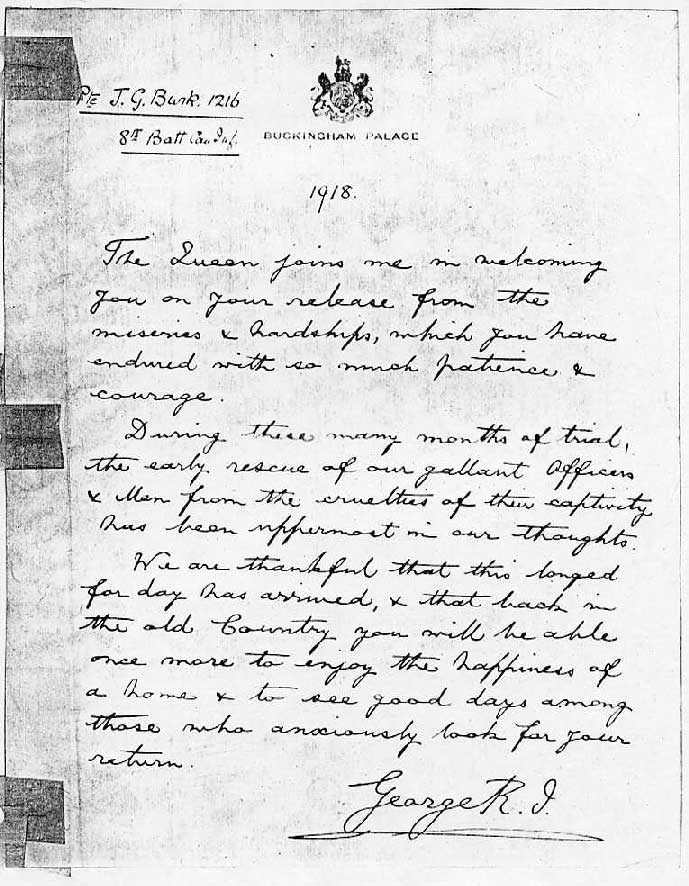 Pte J. G. Burk. 1216
8th Batt Can Inf.
BUCKINGHAM PALACE
1918.
The Queen joins me in welcoming
you on your release from the
miseries & hardships, which you have
endured with so much patience &
courage.
During these many months of trial,
the early rescue of our gallant Officers
& Men from the cruelties of their captivity
has been uppermost in our thoughts.
We are thankful that this longed
for day has arrived, & that back in
the old Country you will be able
once more to enjoy the happiness of
a home & to see good days among
those who anxiously look for your
return.
George R. I.